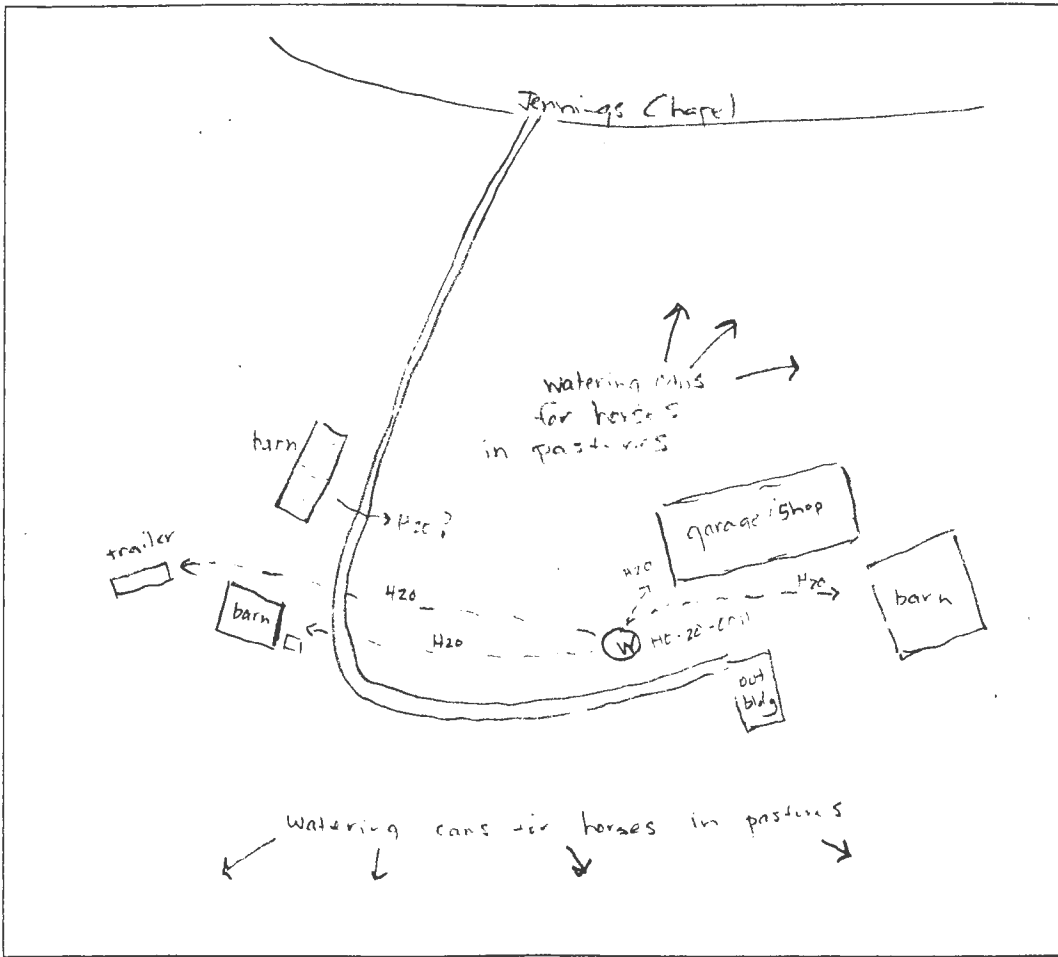 Jennings Chapel
watering cans
for horses
in pastures
barn
H20?
garage/shop
trailer
H20
H20
barn
H20
barn
H20
W
out
bldg
watering cans for horses in pastures